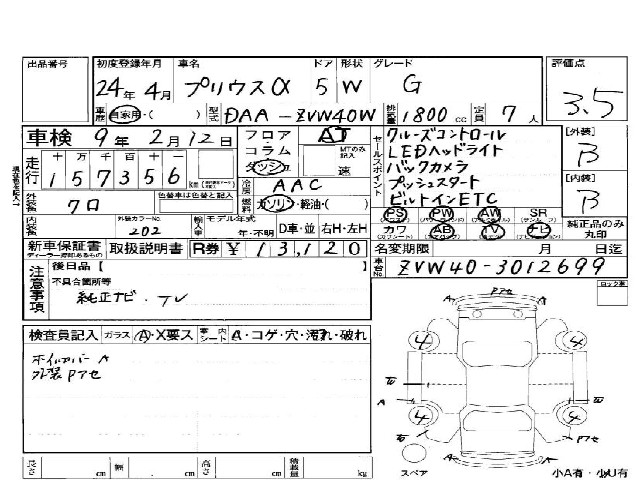 出品番号 初度登録年月 車名 ドア 形状 グレード 評価点
24年 4月 プリウスα 5 W G 3.5
車歴 自家用・( ) 型式 DAA-ZVW40W 排気量 1800 cc 定員 7人
車検 9年 2月 12日 フロア・コラム ダッシュ AT MTのみ記入 速
セールスポイント クルーズコントロール
LEDヘッドライト
バックカメラ
プッシュスタート
ビルトインETC
[外装] B
[内装] B
走行 十 万 千 百 十 一
157356 km
冷房 AAC
外装色 クロ 色替車は色替と記入 燃料 ガソリン・軽油・( )
内装色 外装カラーNo. 202 輸入車 モデル年式 年・不明 D車・並 右H・左H
PS PW AW SR
カワ AB TV ナビ 純正品のみ丸印
新車保証書 取扱説明書 R券 ¥13,120
名変期限 月 日迄
車台No. ZVW40-3012699
注意事項 後日品 [ ]
不具合箇所等
純正ナビ・TV
ロック率
検査員記入 ガラス A・X要ス 車内シート A・コゲ・穴・汚れ・破れ
ホイルカバー A
外装Pアセ
Pアセ
4 4
W W
A A
4 4
Pアセ
A
スペア
長さ cm 幅 cm 高さ cm 積載量 kg
小A有・小U有